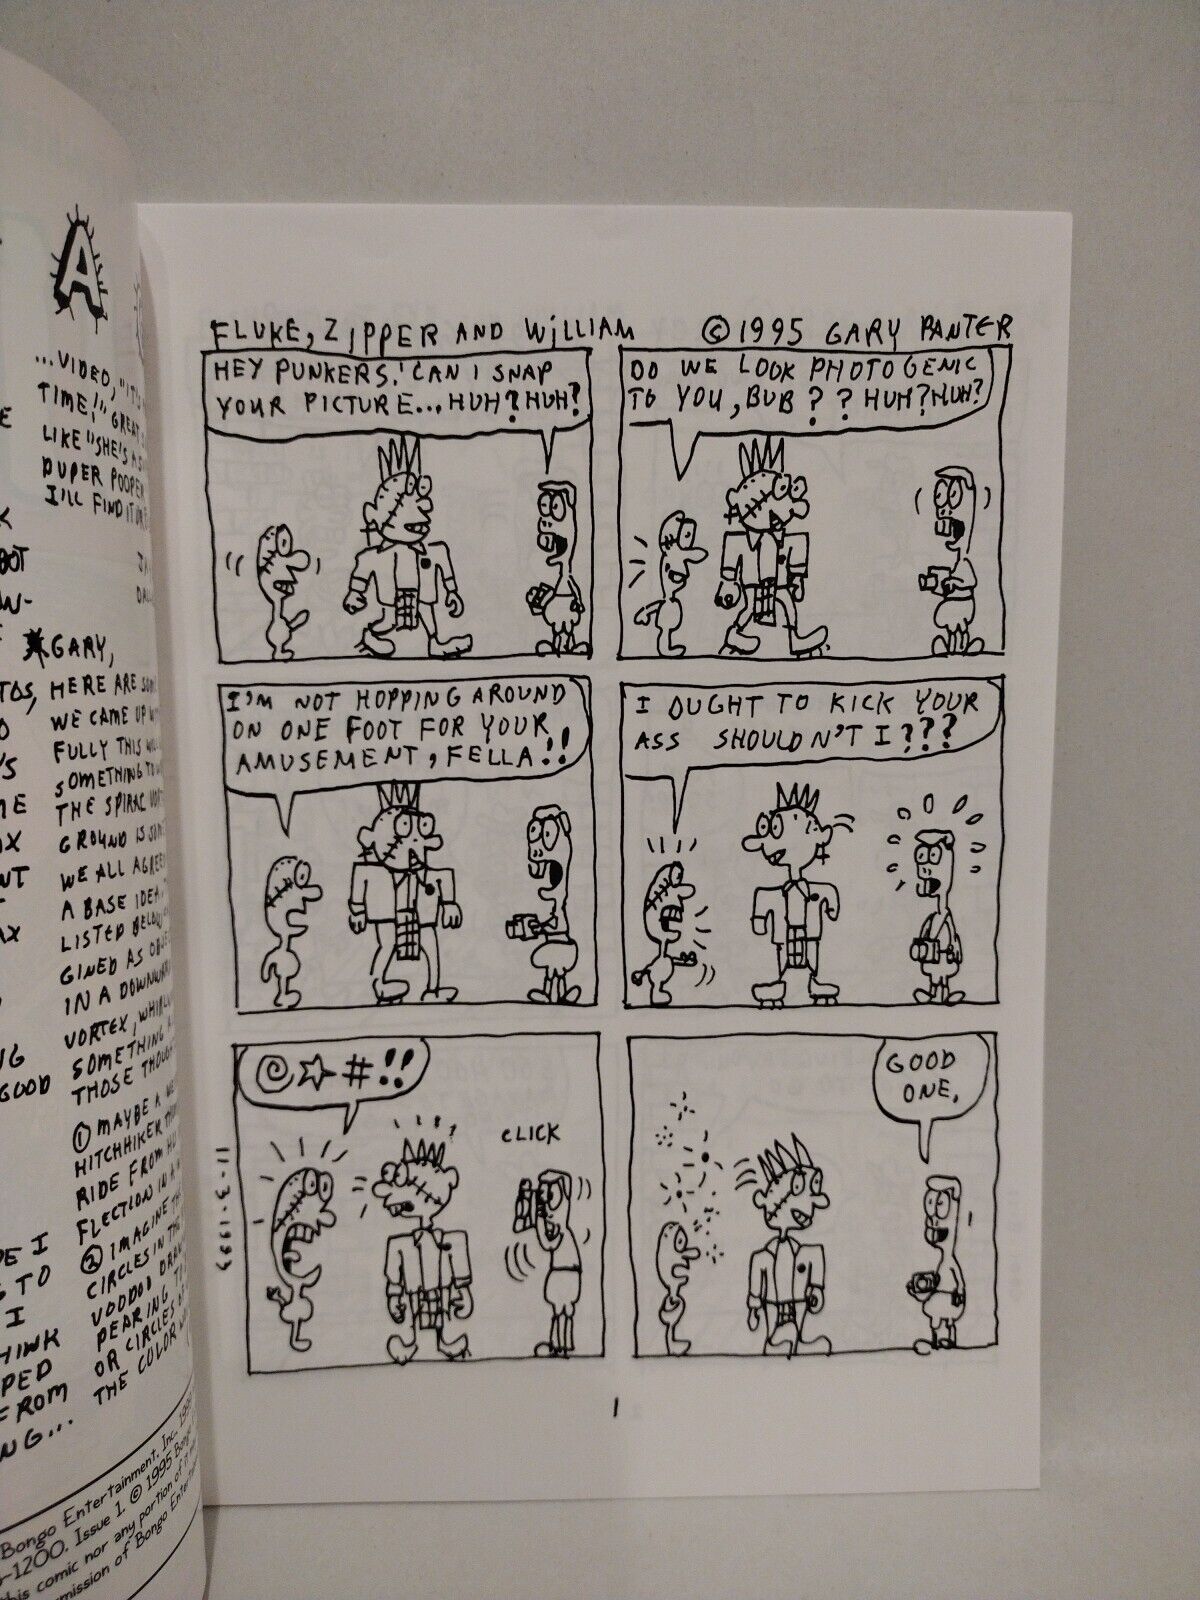 A
...VIDEO, "IT'S
TIME," GREAT
LIKE "SHE'S A S
DUPER POOPER
I'LL FIND IT ON
BOT
GARY,
TOS, HERE ARE SOME
WE CAME UP
FULLY THIS WILL
SOMETHING TO
THE SPIRAL VORT
GROUND IS SOM
WE ALL AGREE
A BASE IDEA,
LISTED BELOW
GINED AS OBJE
IN A DOWNWAR
VORTEX, WHIRL
SOMETHING
THOSE THOUGH
GOOD
① MAYBE A
HITCHHIKER
RIDE FROM
FLECTION IN A
② IMAGINE TH
CIRCLES IN THE
VOODOO DRAW
PEARING
OR CIRCLES OF
THE COLOR
PE I
S TO
I
HINK
PED
FROM
NG...
Bongo Entertainment, Inc.
-1200. Issue 1. © 1995 Bongo
this comic nor any portion of it
mission of Bongo Entertain
FLUKE, ZIPPER AND WILLIAM © 1995 GARY PANTER
HEY PUNKERS! CAN I SNAP
YOUR PICTURE... HUH? HUH?
DO WE LOOK PHOTOGENIC
TO YOU, BUB?? HUH? HUH?
I'M NOT HOPPING AROUND
ON ONE FOOT FOR YOUR
AMUSEMENT, FELLA!!
I OUGHT TO KICK YOUR
ASS SHOULDN'T I???
@☆#!!
CLICK
GOOD
ONE.
1